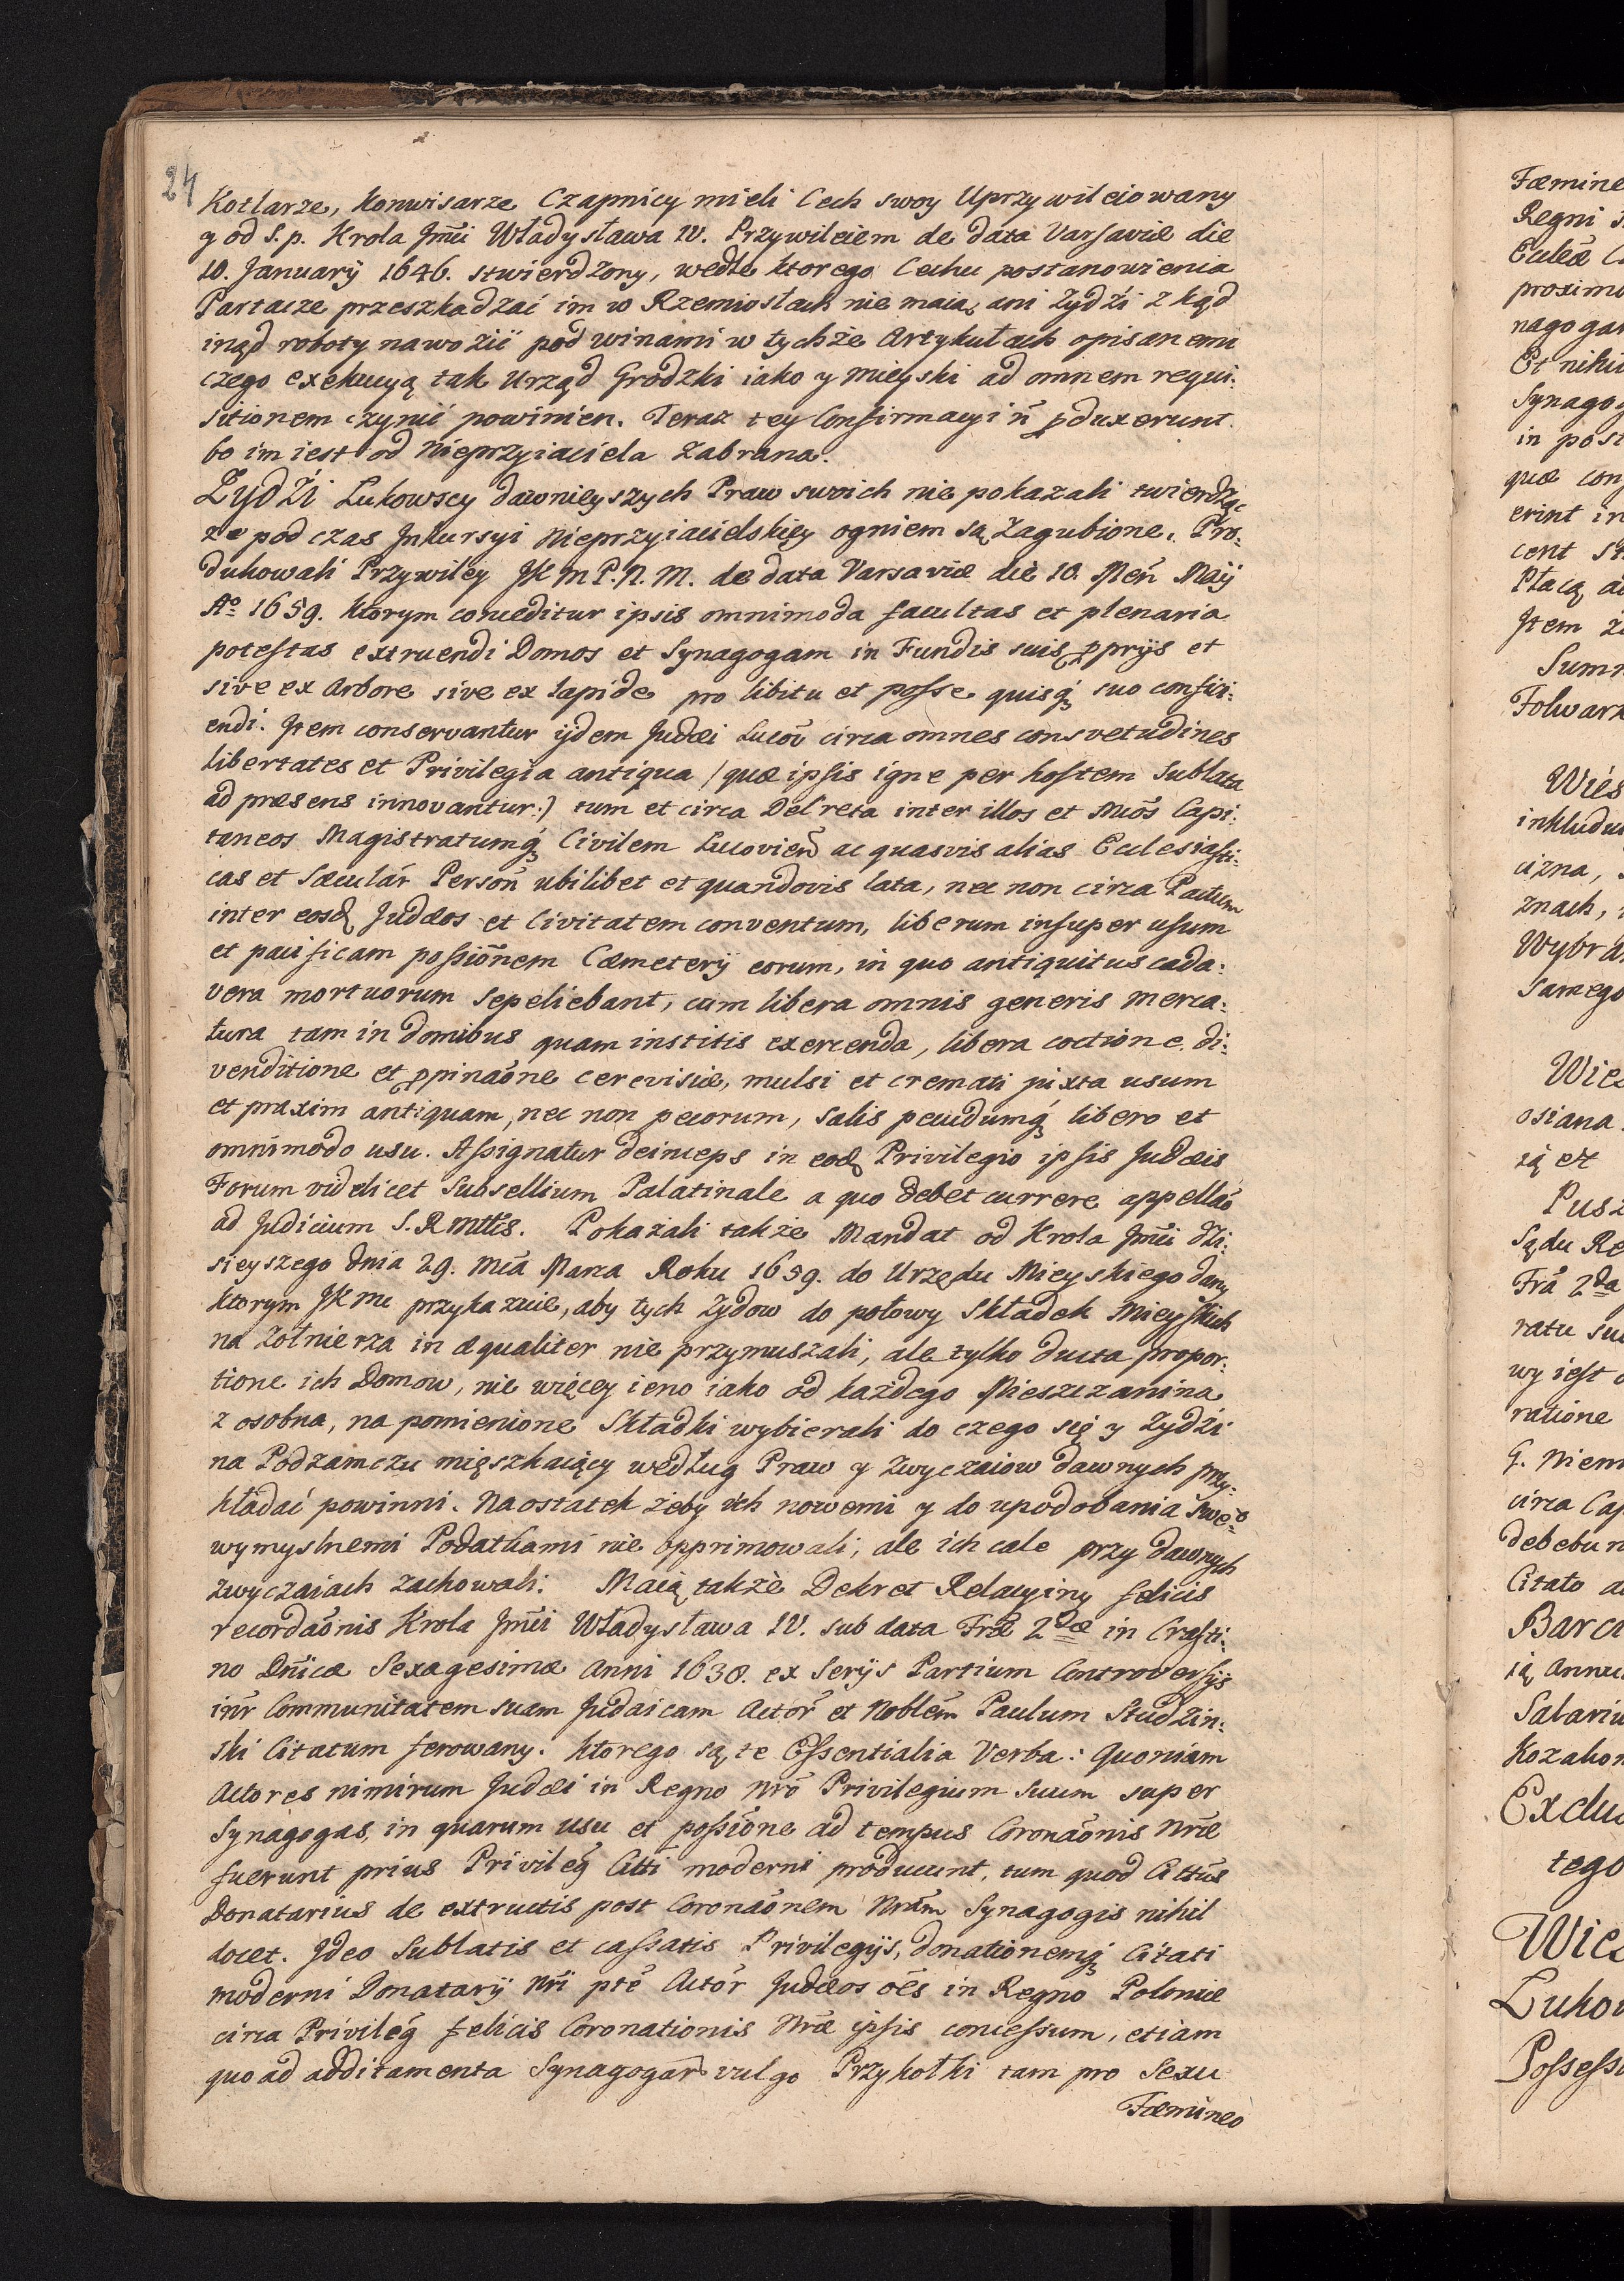 24
Kotlarze, Konwisarze Czapnicy mieli Cech swoy Uprzywileiowany
y od S. p. Krola Jmci Władysława IV. Przywileiem de data Varsaviæ die
10. Januarÿ 1646. stwierdzony, wedle ktorego Cechu postanowienia
Partacze przeszkadzać im w Rzemiosłach nie maią, ani Zydźi z kąd
inąd roboty nawozić pod winami w tychże Artykułach opisanemi
czego exekucyą tak Urząd Grodzki iako y Mieyski ad omnem requi:
sitionem czynić powinien. Teraz tey Confirmacyi ñ ꝓduxerunt
bo im iest od Nieprzyiaciela zabrana.
Zydźi Lukowscy dawnieyszych Praw swoich nie pokazali twierdząc
że pod czas Inkursyi Nieprzyiacielskiey ogniem są zagubione. Pro:
dukowali Przywiley JK M P. N. M. de data Varsaviæ die 10. Men̄ Maÿ
Aº 1659. ktorym conceditur ipsis omnimoda facultas et plenaria
potestas extruendi Domos et Synagogam in Fundis suis ꝓprÿs et
sive ex Arbore sive ex lapide pro libitu et posse quisq́ʒ suo confici:
endi. Item conservantur ÿdem Judæi Lucov̄ circa omnes consvetudines
libertates et Privilegia antiqua /quæ ipsis igne per hostem sublata
ad præsens innovantur:) tum et circa Decreta inter illos et Mc̄os Capi:
taneos Magistratumq́ʒ Civilem Lucovień ac quasvis alias Ecclesiasti:
cas et Sæculár Persoń ubilibet et quandovis lata, nec non circa Pactum
inter eosd Judæos et Civitatem conventum, liberum insuper usum
et pacificam possiõnem Cæmeterÿ eorum, in quo antiquitus cada:
vera mortuorum sepeliebant, cum libera omnis generis merca:
tura tam in domibus quam institis exercenda, libera coctione. di:
venditione et ꝓpinaõne cerevisiæ, mulsi et cremati juxta usum
et praxim antiquam, nec non pecorum, salis pecudumq́ʒ libero et
omnimodo usu. Assignatur deinceps in eod Privilegio ipsis Judæis
Forum videlicet Subsellium Palatinale a quo debet currere appellaõ
ad Judicium S. R Mttis. Pokazali także Mandat od Krola Jmci dźi:
sieyszego dnia 29. Mcá Marca Roku 1659. do Urzędu Mieyskiego dany
ktorym JK Mć przykazuie, aby tych Zydow do połowy Składek Mieyskich
na Zołnierza inæqualiter nie przymuszali, ale tylko ducta propor:
tione ich Domow, nie więcey ieno iako od każdego Mieszczanina
z osobna, na pomienione Składki wybierali do czego się y Zydźi
na Podzamczu mięszkaiący według Praw y Zwyczaiow dawnych przy:
kładać powinni. Na ostatek żeby ich nowemi y do upodobania sweº
wymyslnemi Podatkami nie opprimowali, ale ich cale przy dawnych
zwyczaiach zachowali. Maią także Dekret Relacyiny felicis
recordaõnis Krola Jmci Władysława IV. sub data Fr̃æ 2dæ in Crasti:
no Dñicæ Sexagesimæ Anni 1638. ex Serÿs Partium Controversÿs
inr̃ Communitatem suam Judaicam Actor̃ et Noblem̃ Paulum Studzin:
ski Citatum ferowany. ktorego są te Essentialia Verba: Quoniam
Actores nimirum Judæi in Regno nr̃o Privilegium suum super
Synagogas, in quarum usu et possiõne ad tempus Coronaõnis Nr̃æ
fuerunt prius Privileg̃ Citti moderni producunt, tum quod Cittus
Donatarius de extructis post Coronaõnem Nr̃am Synagogis nihil
docet. Ideo Sublatis et cassatis Privilegÿs, donationemq́ʒ Citati
moderni Donatarÿ Nr̃i pt̃e Actor̃ Judæos oẽs in Regno Poloniæ
circa Privileg̃ felicis Coronationis Nr̃æ ipsis concessum, etiam
quo ad additamenta Synagogar̃ vulgo Przykołki tam pro Sexu
Fæmineo
Fæmine
Regni
proximo
in post
quæ con
erint in
cent
Płacą
Item
Folwar
inkludu
cizna,
znach,
Wybra
samego
osiana
ią et
Sądu Re
Fr̃a 2da
ratu
wy iest
ratione
circa Cap
debebun
Citato
ią Annu
Salariu
Kozakom
Exclu
tego
Wies
Lukow
Possess